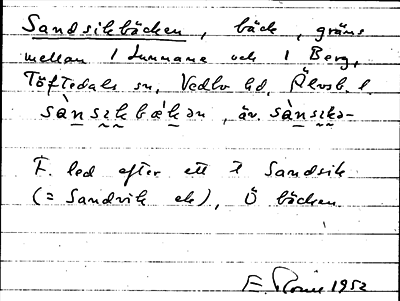 Sandsikbäcken, bäck, gräns
mellan 1 Lunnane och 1 Berg,
Töftedals sn, Vedbo hd, Älvsb. l.
sànsz̰k̰bæ̀kən, äv. sànsz̰k̰ə-
F. led efter ett ⱡ Sandsik
(= Sandvik ek), Ö bäcken.
1952